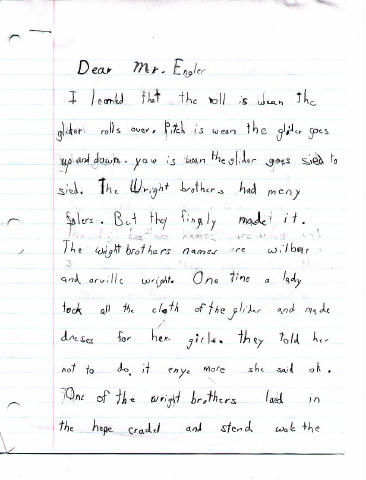 Dear Mr. Engler
I learnd that the roll is wean the
glider rolls over. Pitch is wean the glider goes
up and down. yaw is wean the glider goes sied to
sied. The Wright brothers had meny
falers. But they finaly made it.
The wight brothers names are wilbear
and orville wright. One time a lady
took all the cloth of the glider and made
dreses for her girls. they told her
not to do it enye more she said ok.
One of the wright brothers laed in
the hepe cradel and stend wok the